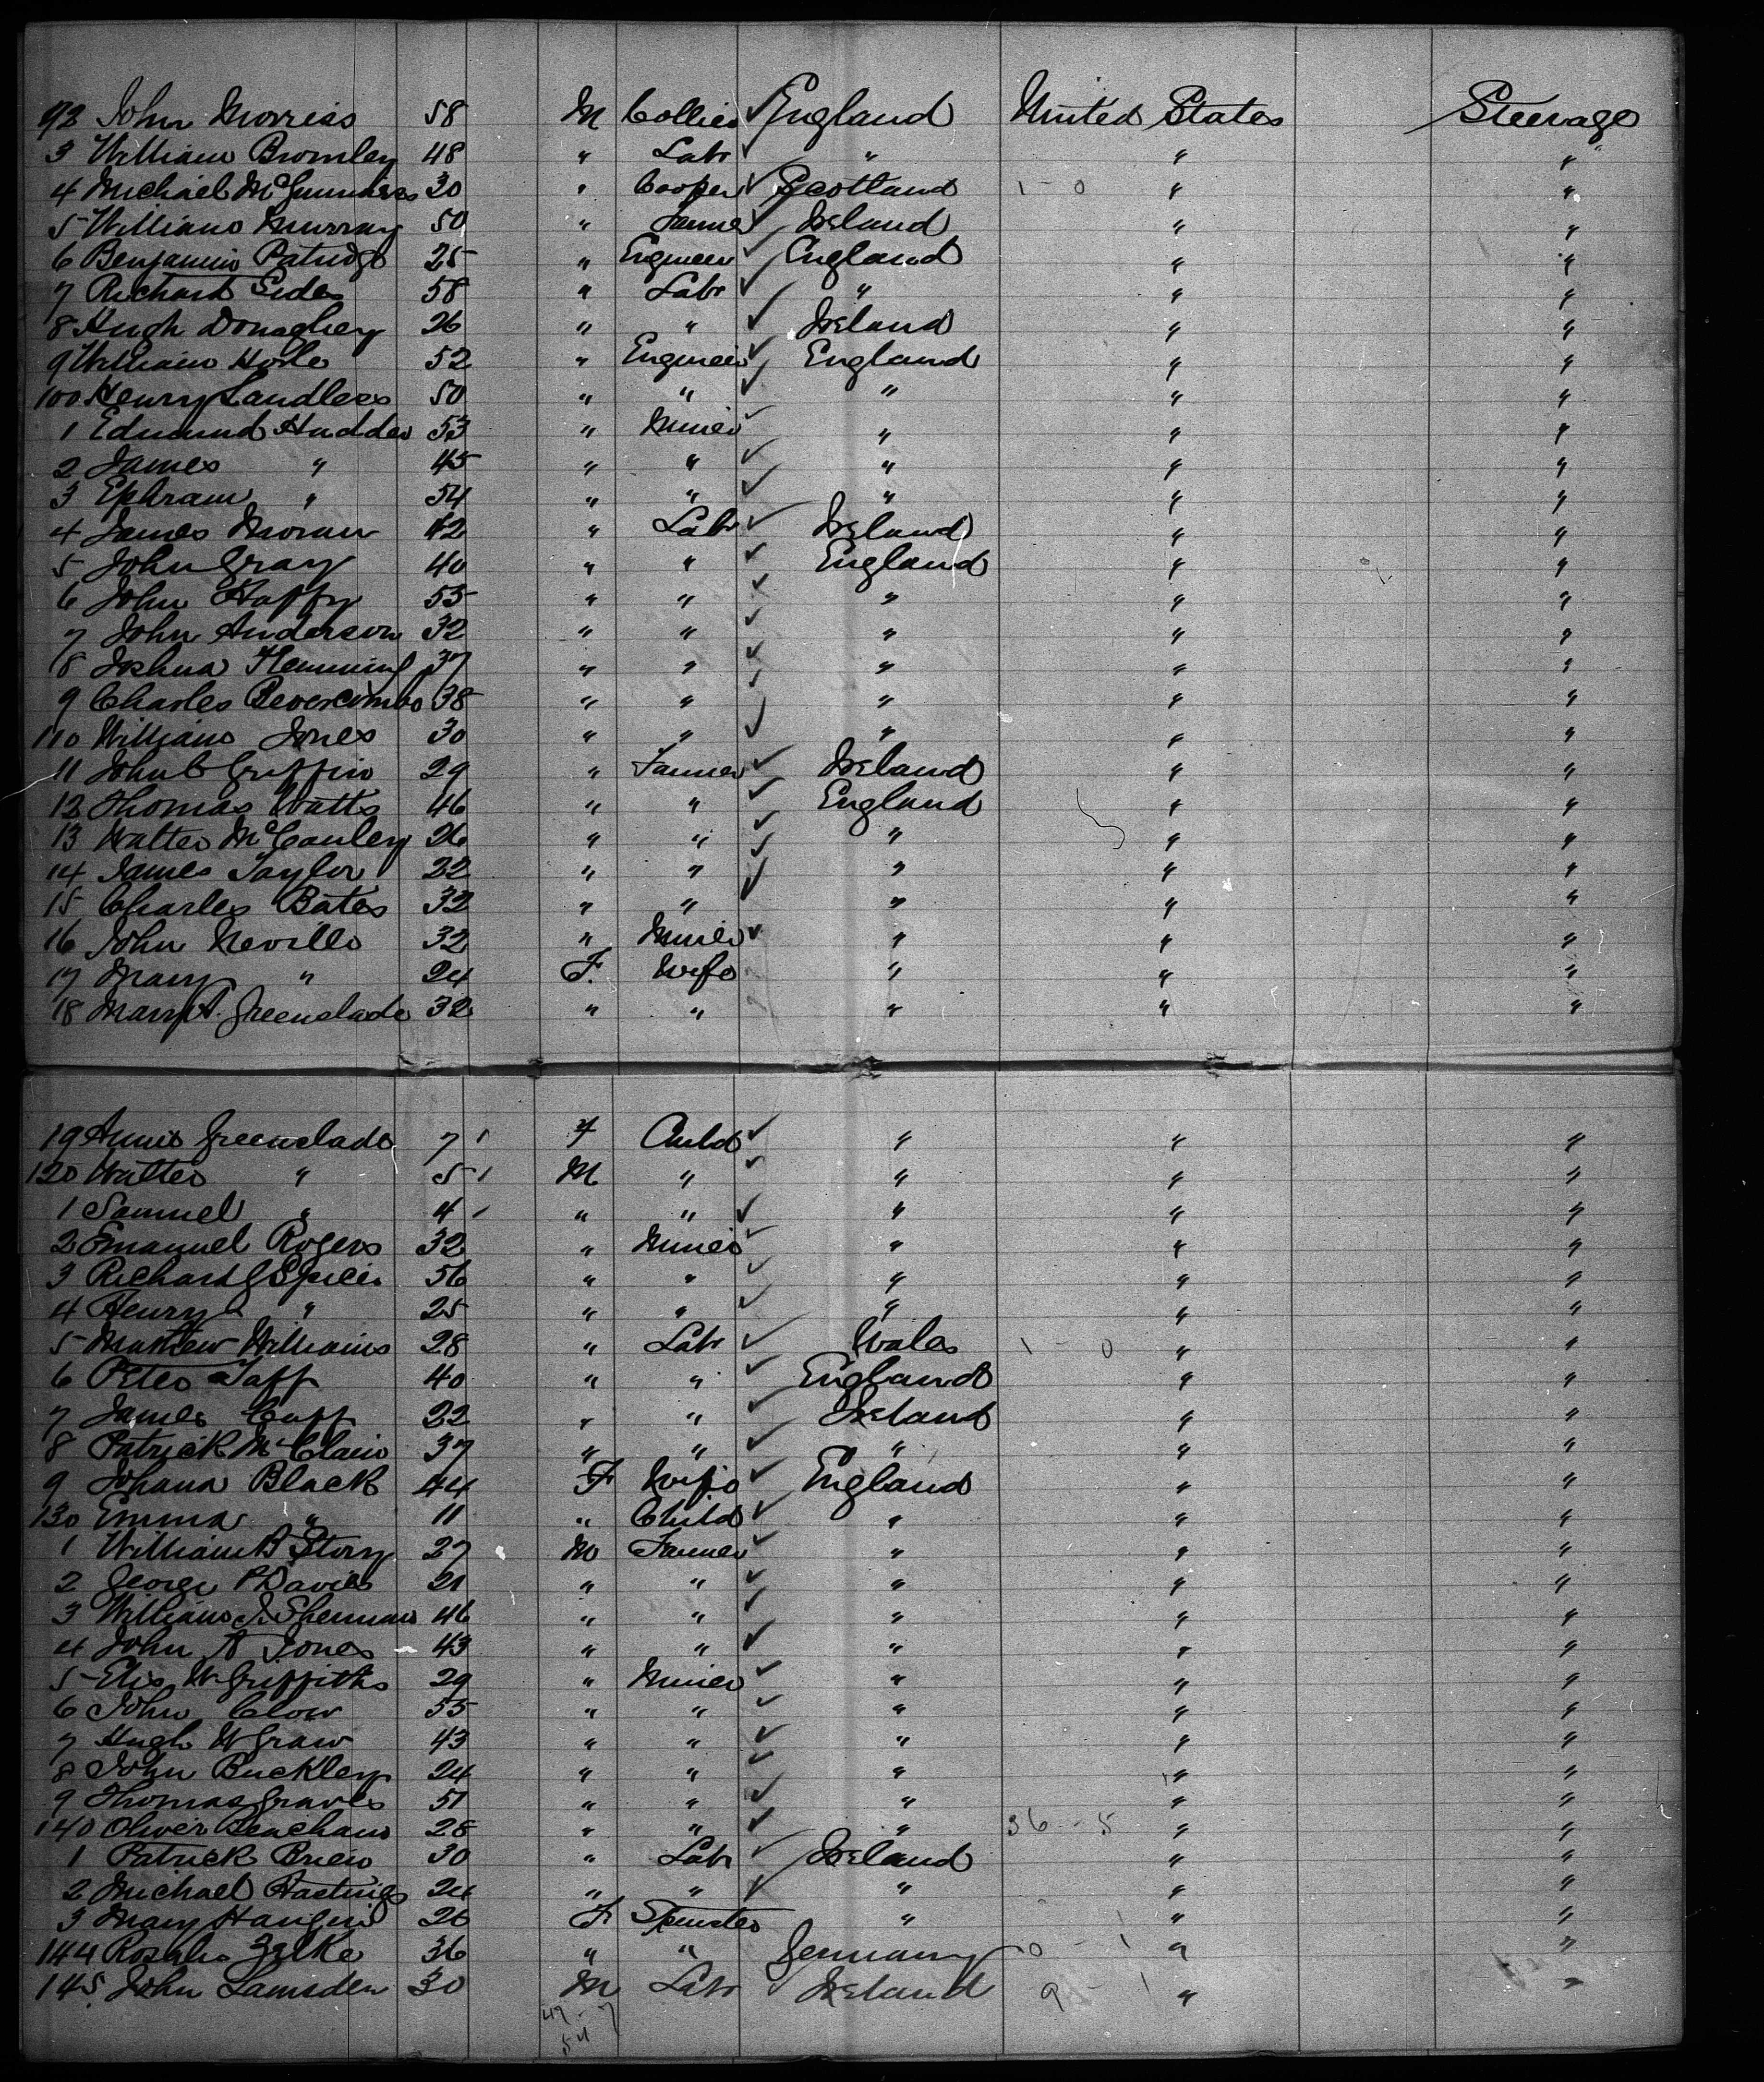 92 John Morriss 58 M Collier ✓ England United States Steerage
3 William Bromley 48 " Labr ✓ " " "
4 Michael 30 " Cooper ✓ Scotland 1 - 0 " "
5 William Murray 50 " Farmer ✓ Ireland " "
6 Benjamin Patridge 25 " Engineer ✓ England " "
7 Richard Sides 58 " Labr ✓ " " "
8 Hugh Donaghey 26 " " ✓ Ireland " "
9 William Hole 52 " Engineer ✓ England " "
100 Henry Landless 50 " " ✓ " " "
1 Edmund Hadder 53 " Miner ✓ " " "
2 James " 45 " " ✓ " " "
3 Ephram " 54 " " ✓ " " "
4 James Moran 42 " Labr ✓ Ireland " "
5 John Gray 40 " " ✓ England " "
6 John Happy 55 " " ✓ " " "
7 John Anderson 32 " " ✓ " " "
8 Joshua Flemming 37 " " ✓ " " "
9 Charles 38 " " ✓ " " "
110 William Jones 30 " " ✓ " " "
11 John C Griffin 29 " Farmer ✓ Ireland " "
12 Thomas Watts 46 " " ✓ England " "
13 Walter McCauley 26 " " ✓ " " "
14 James Taylor 22 " " ✓ " " "
15 Charles Bates 32 " " ✓ " " "
16 John Neville 32 " Miner ✓ " " "
17 Mary " 24 F. Wife " " "
18 Mary A. Greenslade 32 " " " " "
19 Annie Greenslade 7 F Child ✓ " " "
120 Walter " 5 M " ✓ " " "
1 Samuel " 4 " " ✓ " " "
2 Emanuel Rogers 32 " Miner ✓ " " "
3 Richard G 56 " " ✓ " " "
4 Henry " 25 " " ✓ " " "
5 Mathew Williams 28 " Labr ✓ Wales 1 - 0 " "
6 Peter Taff 40 " " ✓ England " "
7 James Cuff 22 " " ✓ Ireland " "
8 Patrick McClain 37 " " ✓ " " "
9 Johana Black 44 F Wife ✓ England " "
130 Emma " 11 " Child ✓ " " "
1 William B Story 27 M Farmer ✓ " " "
2 George P Davies 21 " " ✓ " " "
3 William J. Sherman 46 " " ✓ " " "
4 John A Jones 43 " " ✓ " " "
5 Elis W Griffiths 29 " Miner ✓ " " "
6 John Clow 55 " " ✓ " " "
7 Hugh W Graw 43 " " ✓ " " "
8 John Buckley 24 " " ✓ " " "
9 Thomas Graves 51 " " ✓ " " "
140 Oliver Beacham 28 " " ✓ " 36 - 5 " "
1 Patrick Brien 30 " Labr ✓ Ireland " "
2 Michael Hastings 24 " " ✓ " " "
3 Mary 26 F Spinster " " "
144 Rosalie Zelke 36 " " Germany 0 - 1 " "
145 John Lamsden 30 M Labr Ireland 9 - 1 " "
47 - 7
54